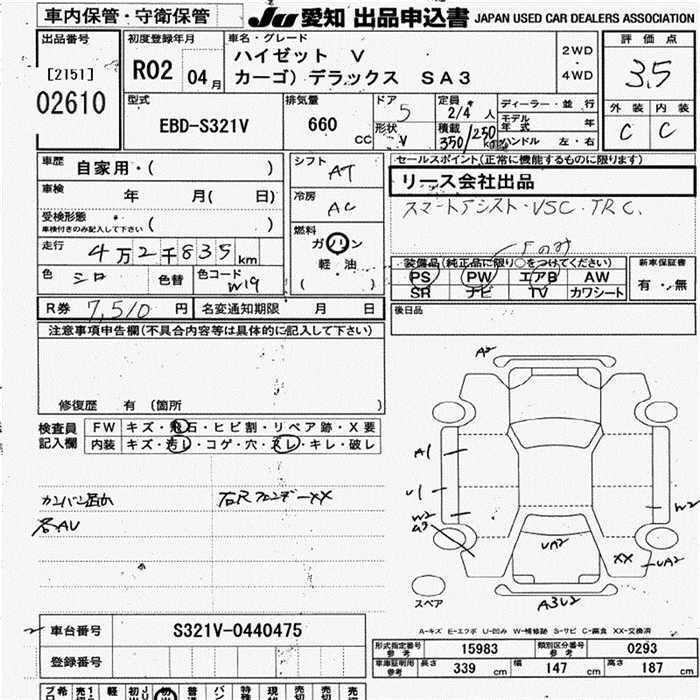 車内保管・守衛保管
JU 愛知 出品申込書 JAPAN USED CAR DEALERS ASSOCIATION
出品番号
[2151]
02610
初度登録年月
R02 04月
車名・グレード
ハイゼット V
カーゴ) デラックス SA3
2WD
・
4WD
評価点
3.5
外装 内装
C C
型式
EBD-S321V
排気量
660 CC
ドア 5
形状 V
定員 2/4 人
積載 350/250 kg
ディーラー・並行
モデル年式 年
ハンドル 左・右
車歴 自家用・( )
車検 年 月( 日)
受検形態
車検付きのみ記入して下さい ( )
走行 4万2千835km
色 シロ 色替 色コード W19
シフト AT
冷房 AC
燃料
ガソリン
軽・油
( )
セールスポイント(正常に機能するものに限ります)
リース会社出品
スマートアシスト・VSC・TRC.
Fのみ
装備品(純正品に限り○をつけてください)
PS PW エアB AW
SR ナビ TV カワシート
新車保証書
有・無
R券 7,510円 名変通知期限 月 日
後日品
注意事項申告欄(不具合内容等は具体的に記入して下さい)
修復歴 有 (箇所 )
検査員
記入欄
FW キズ・飛石・ヒビ割・リペア跡・X要
内装 キズ・汚レ・コゲ・穴・スレ・キレ・破レ
右Rフェンダーxx
各AU
A2
A1
U1
W2
W2
UA2
XX
UA2
スペア
A3U2
車台番号 S321V-0440475
登録番号
A-キズ E-エクボ U-凹み W-補修跡 S-サビ C-腐食 XX-交換済
形式指定番号参考 15983 類別区分番号参考 0293
車庫証明用参考 長さ 339 cm 幅 147 cm 高さ 187 cm